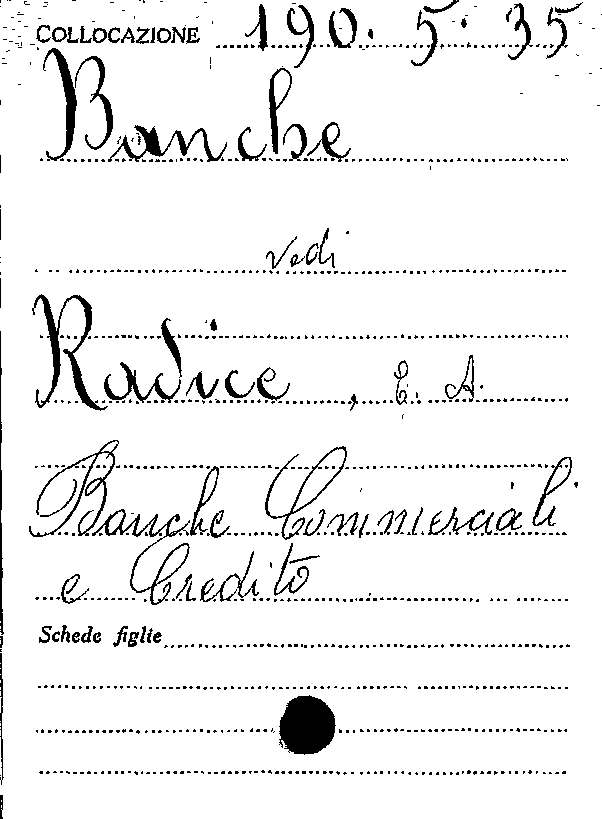 COLLOCAZIONE 190. 5. 35
Banche
vedi
Radice, E. A.
Banche Commerciali
e Credito
Schede figlie